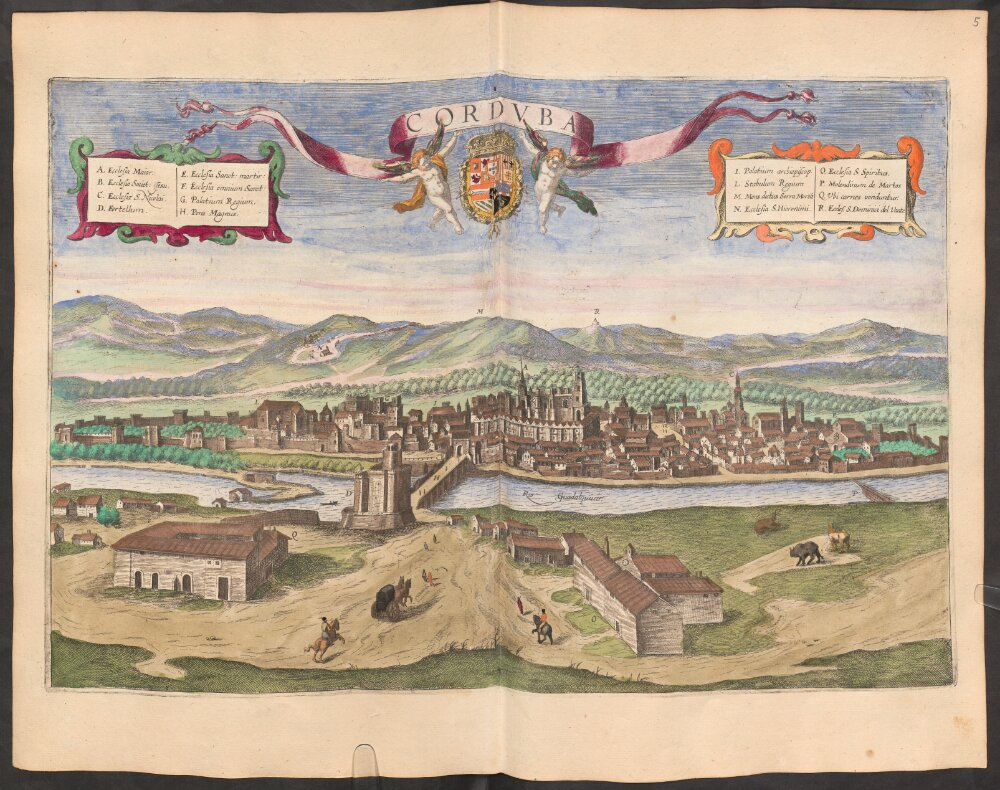 5
CORDVBA
A. Ecclesia Maior.
B. Ecclesia
C. Ecclesia S. Nicolai
D. Fortellum.
E. Ecclesia Sanct: martir:
F. Ecclesia omnium Sanct
G. Palatium Regium.
H. Pons Magnus.
I. Palatium archiepiscop
L. Stabulum Regium
M. Mons dictus Sierra
N. Ecclesia S. Hieronimi.
O. Ecclesia S. Spiritus.
P. Molendinum de Martos
Q. Vbi carnes venduntur.
R. Eccles. S. Dominici del
M
R
C
D
H
Rio Guadalquivir
P
Q
O